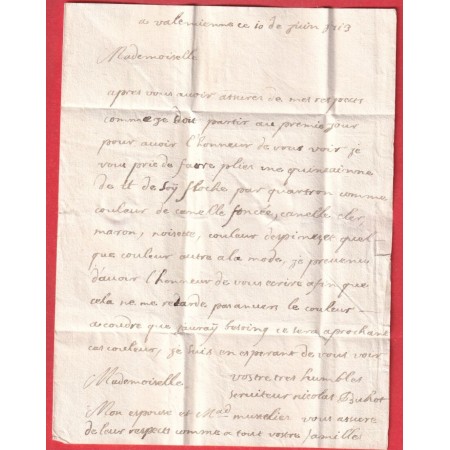 a valemiennes ce 10 de juin 1713
Mademoiselle
apres vous avoir assures de mes respects
comme je doit partir au premie jour
pour avoir l'honneur de vous voir je
vous prie de faire plier ma quinsainne
de tt de soÿ floche par quartron comme
couleur de canelle foncée, canelle cler
maron, noisette, couleur d'espines et quel
que couleur autre a la mode, je previens
d'avoir l'honneur de vous ecrire afin que
cela ne me retarde pas anvers le couleur
a coudre que jauraÿ besoing ce sera aprochant
ces couleur, je suis en esperant de vous voir
Mademoiselle vostre tres humble
serviteur nicolas
Mon espouse et Mad vous assure
de leur respects comme a tout vostre famille